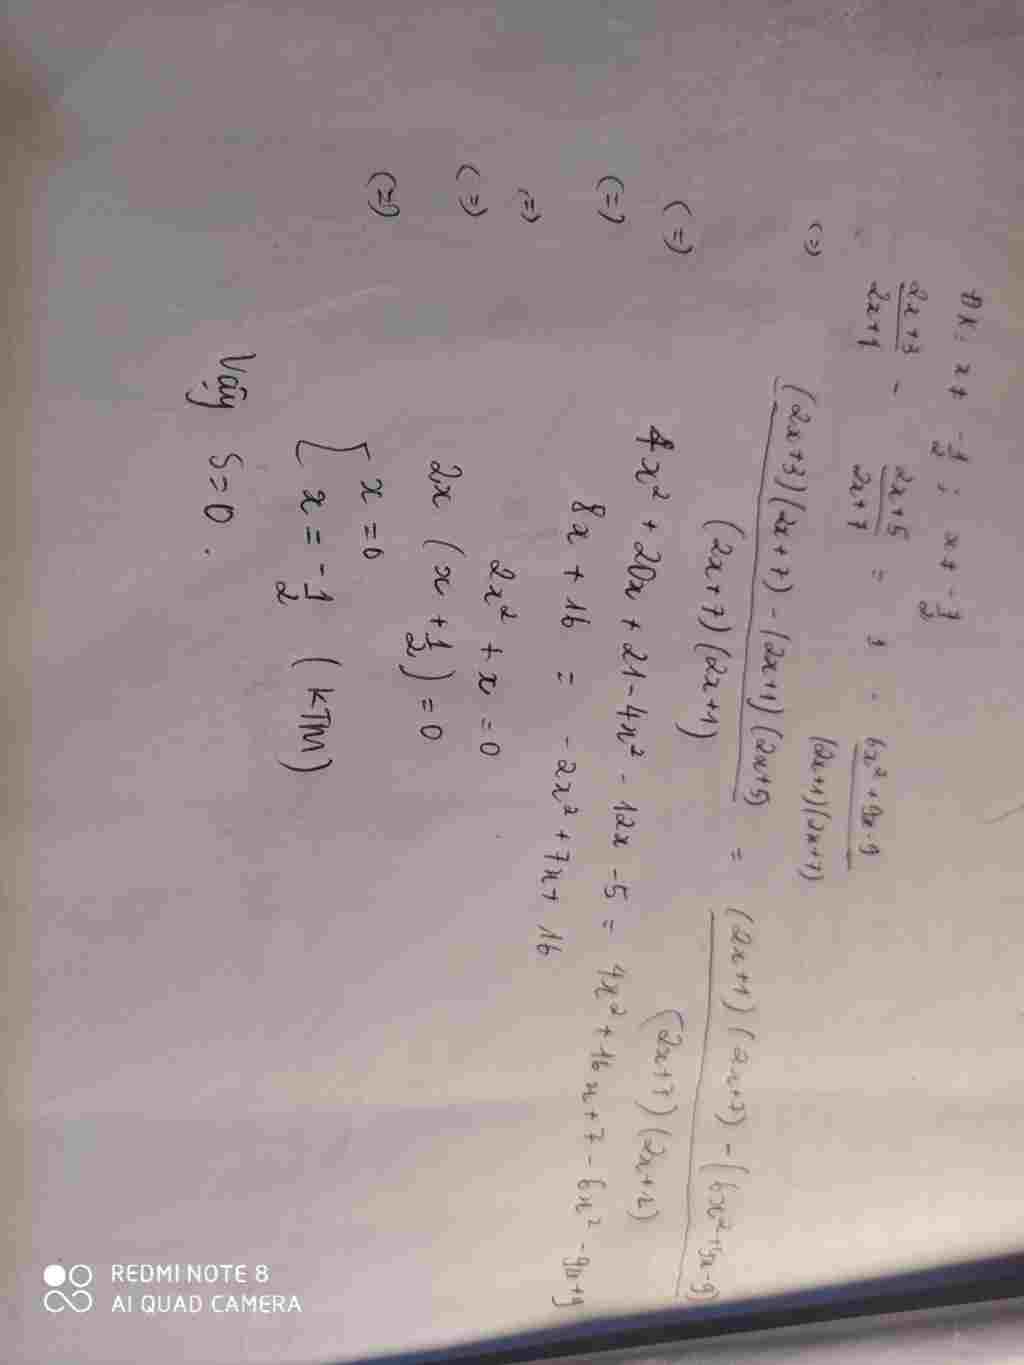 ĐK: x ≠ -1/2 ; x ≠ -7/2
(=) (2x+3)/(2x+1) - (2x+5)/(2x+7) = 1 - (6x² + 9x - 9)/((2x+1)(2x+7))
(=) ((2x+3)(2x+7) - (2x+1)(2x+5))/((2x+7)(2x+1)) = ((2x+1)(2x+7) - (6x²+9x-9))/
(=) 4x² + 20x + 21 - 4x² - 12x - 5 = 4x² + 16x + 7 - 6x² - 9x + 9
(=) 8x + 16 = -2x² + 7x + 16
(=) 2x² + x = 0
(=) 2x (x + 1/2) = 0
[ x = 0
x = -1/2 (KTM)
Vậy S = 0.
REDMI NOTE 8
AI QUAD CAMERA